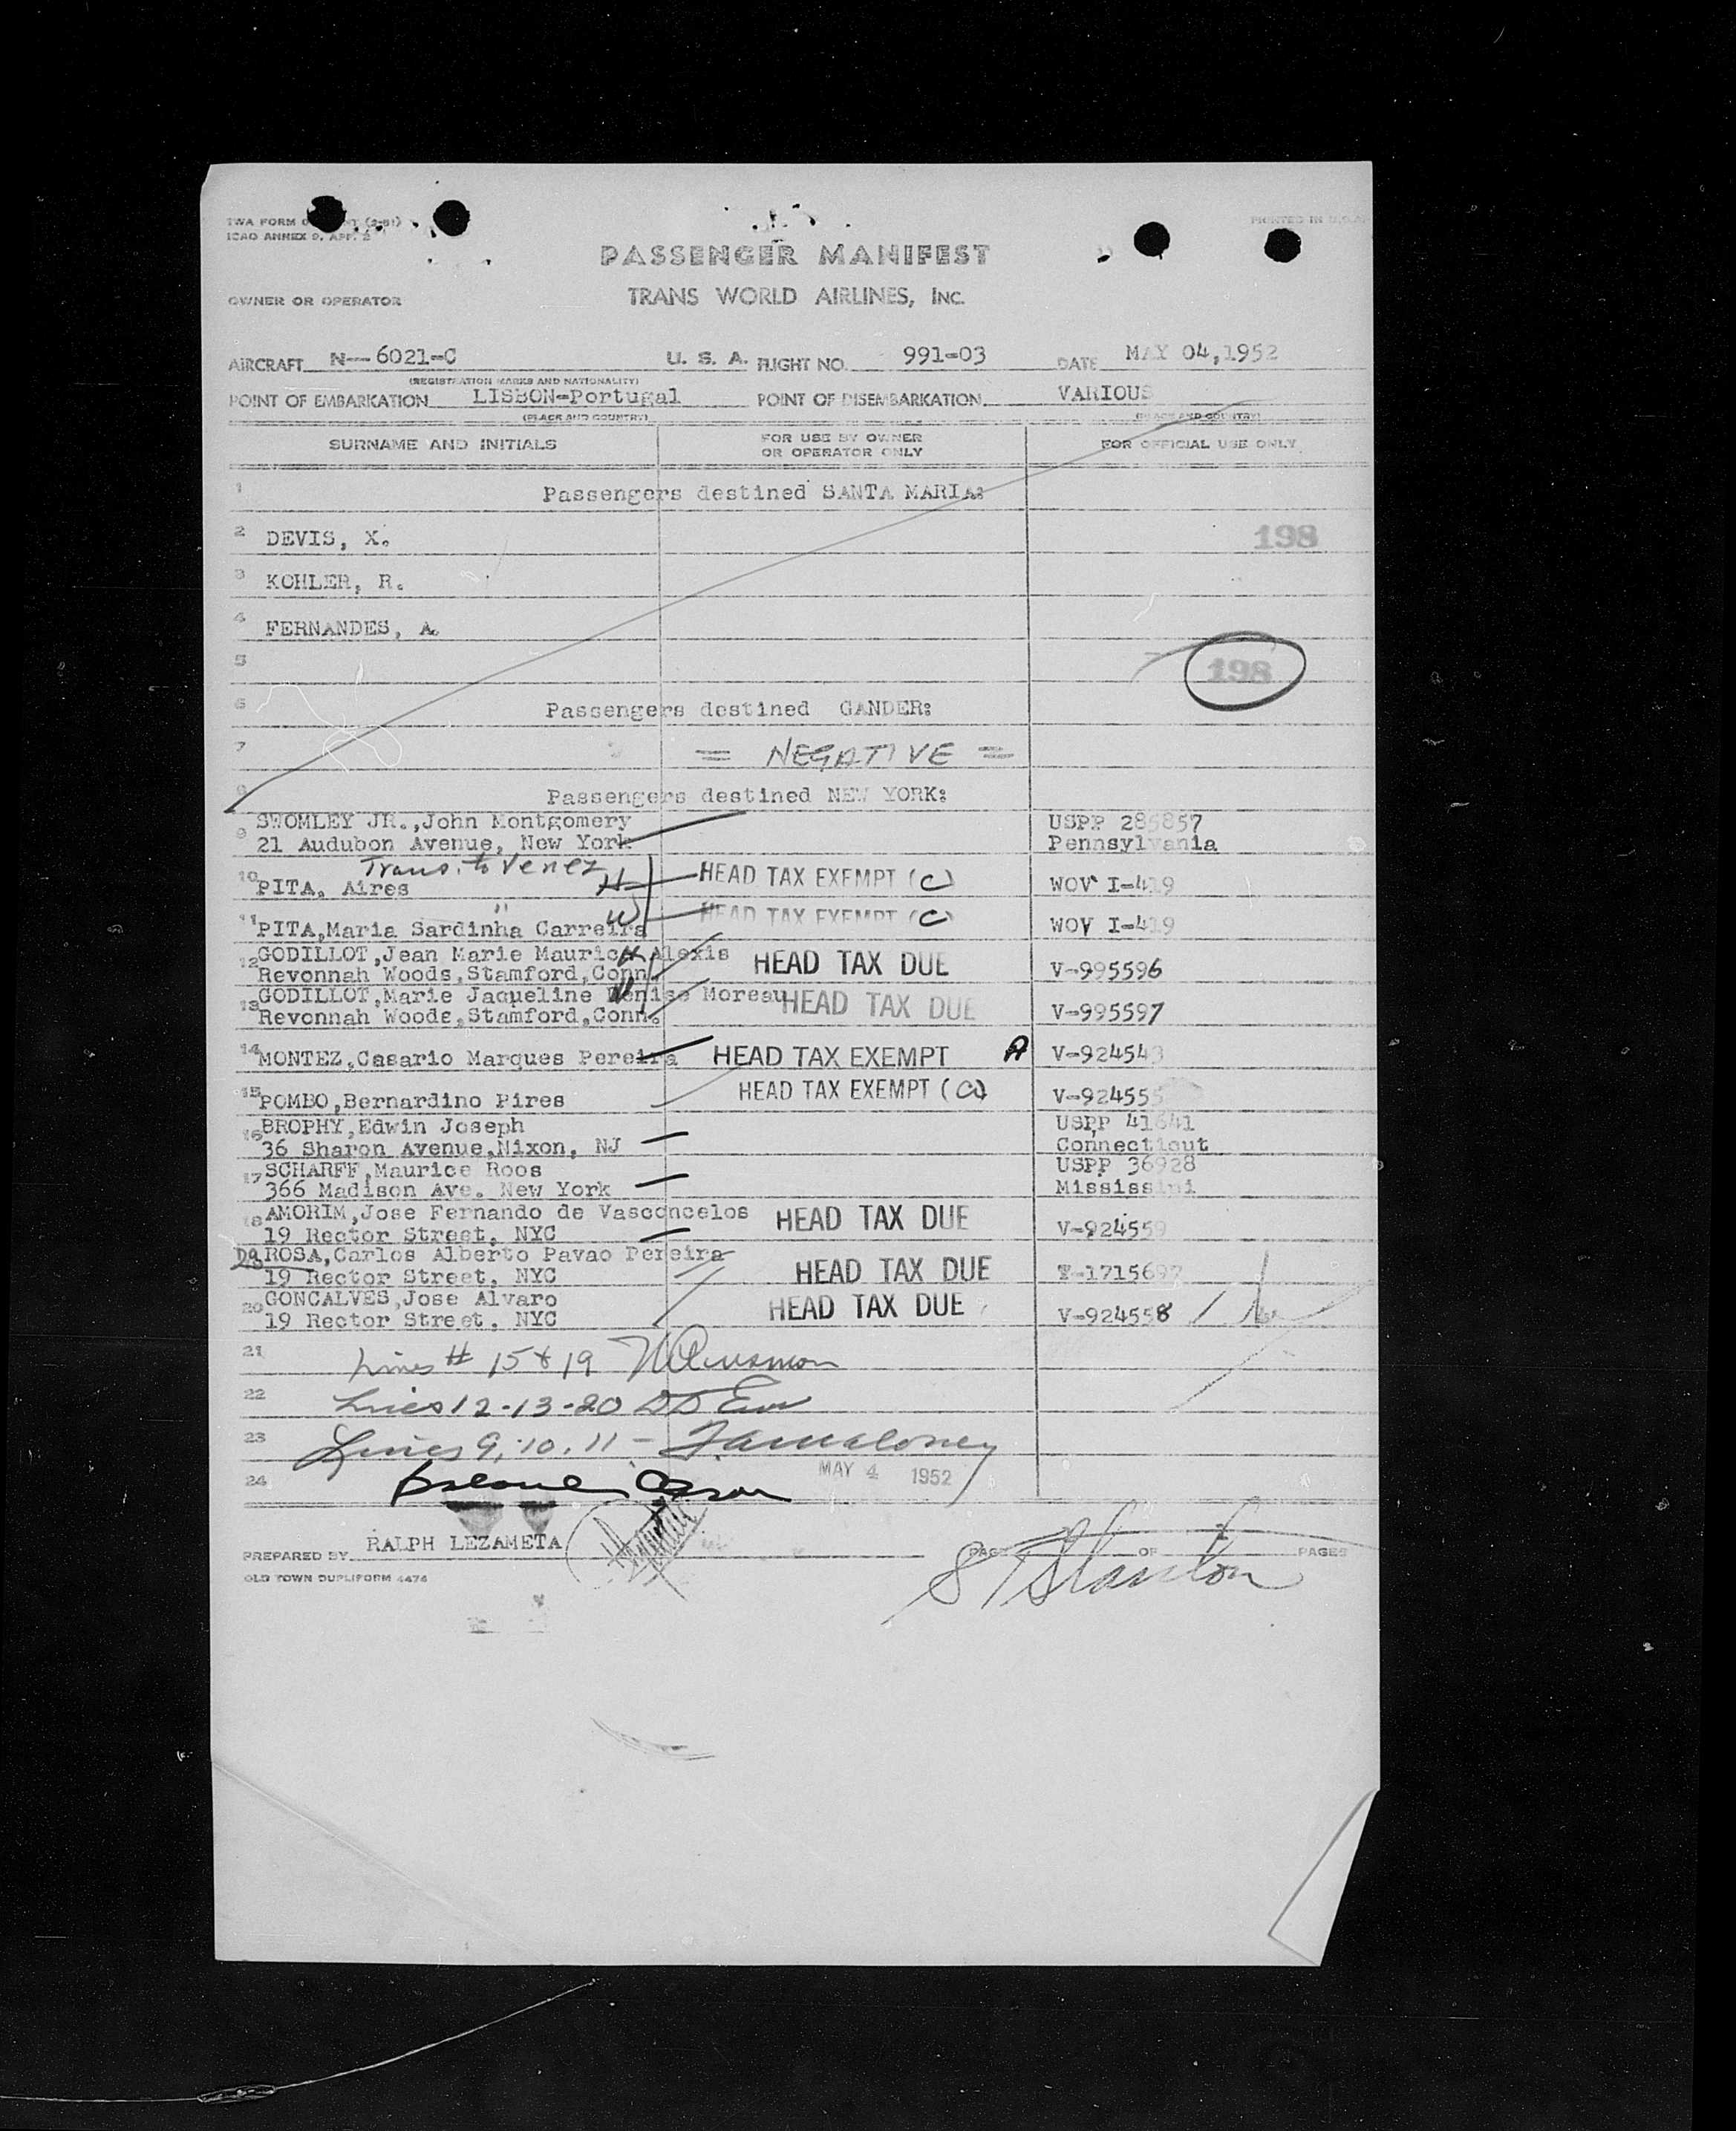 TWA FORM (2-51)
ICAO ANNEX 9, APP. 2
PRINTED IN U.S.A.
PASSENGER MANIFEST
OWNER OR OPERATOR TRANS WORLD AIRLINES, INC.
AIRCRAFT N--6021-C U. S. A. FLIGHT NO. 991-03 DATE MAY 04,1952
(REGISTRATION MARKS AND NATIONALITY)
POINT OF EMBARKATION LISBON-Portugal POINT OF DISEMBARKATION VARIOUS
(PLACE AND COUNTRY) (PLACE AND COUNTRY)
SURNAME AND INITIALS FOR USE BY OWNER OR OPERATOR ONLY FOR OFFICIAL USE ONLY
1 Passengers destined SANTA MARIA:
2 DEVIS, X. 198
3 KOHLER, R.
4 FERNANDES, A.
5 198
6 Passengers destined GANDER:
7 = NEGATIVE =
8 Passengers destined NEW YORK:
9 SWOMLEY JR.,John Montgomery USPP 285857
21 Audubon Avenue, New York Pennsylvania
Trans. to Venez
10 PITA, Aires H HEAD TAX EXEMPT (C) WOV I-419
"
11 PITA,Maria Sardinha Carreira W HEAD TAX EXEMPT (C) WOV I-419
12 GODILLOT,Jean Marie Maurice Alexis H HEAD TAX DUE V-995596
Revonnah Woods,Stamford,Conn.
13 GODILLOT,Marie Jaqueline Denise Moreau W HEAD TAX DUE V-995597
Revonnah Woods,Stamford,Conn.
14 MONTEZ,Casario Marques Pereira HEAD TAX EXEMPT A V-924543
15 POMBO,Bernardino Pires HEAD TAX EXEMPT (C) V-924555
16 BROPHY,Edwin Joseph USPP 41641
36 Sharon Avenue,Nixon, NJ Connecticut
17 SCHARFF,Maurice Roos USPP 36928
366 Madison Ave. New York Mississipi
18 AMORIM,Jose Fernando de Vasconcelos HEAD TAX DUE V-924559
19 Rector Street, NYC
Da ROSA,Carlos Alberto Pavao Pereira HEAD TAX DUE
19 Rector Street, NYC
20 GONCALVES,Jose Alvaro HEAD TAX DUE V-924558
19 Rector Street, NYC
21 Lines # 15 & 19
22 Lines 12-13-20
23 Lines 9, 10, 11 - Maloney
24 MAY 4 1952
PREPARED BY RALPH LEZAMETA PAGE OF PAGES
OLD TOWN DUPLIFORM 4474